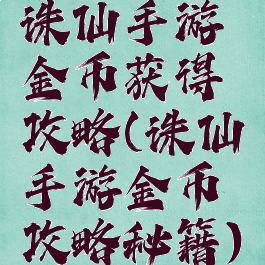 诛仙手游
金币获得
攻略(诛仙
手游金币
攻略秘籍)